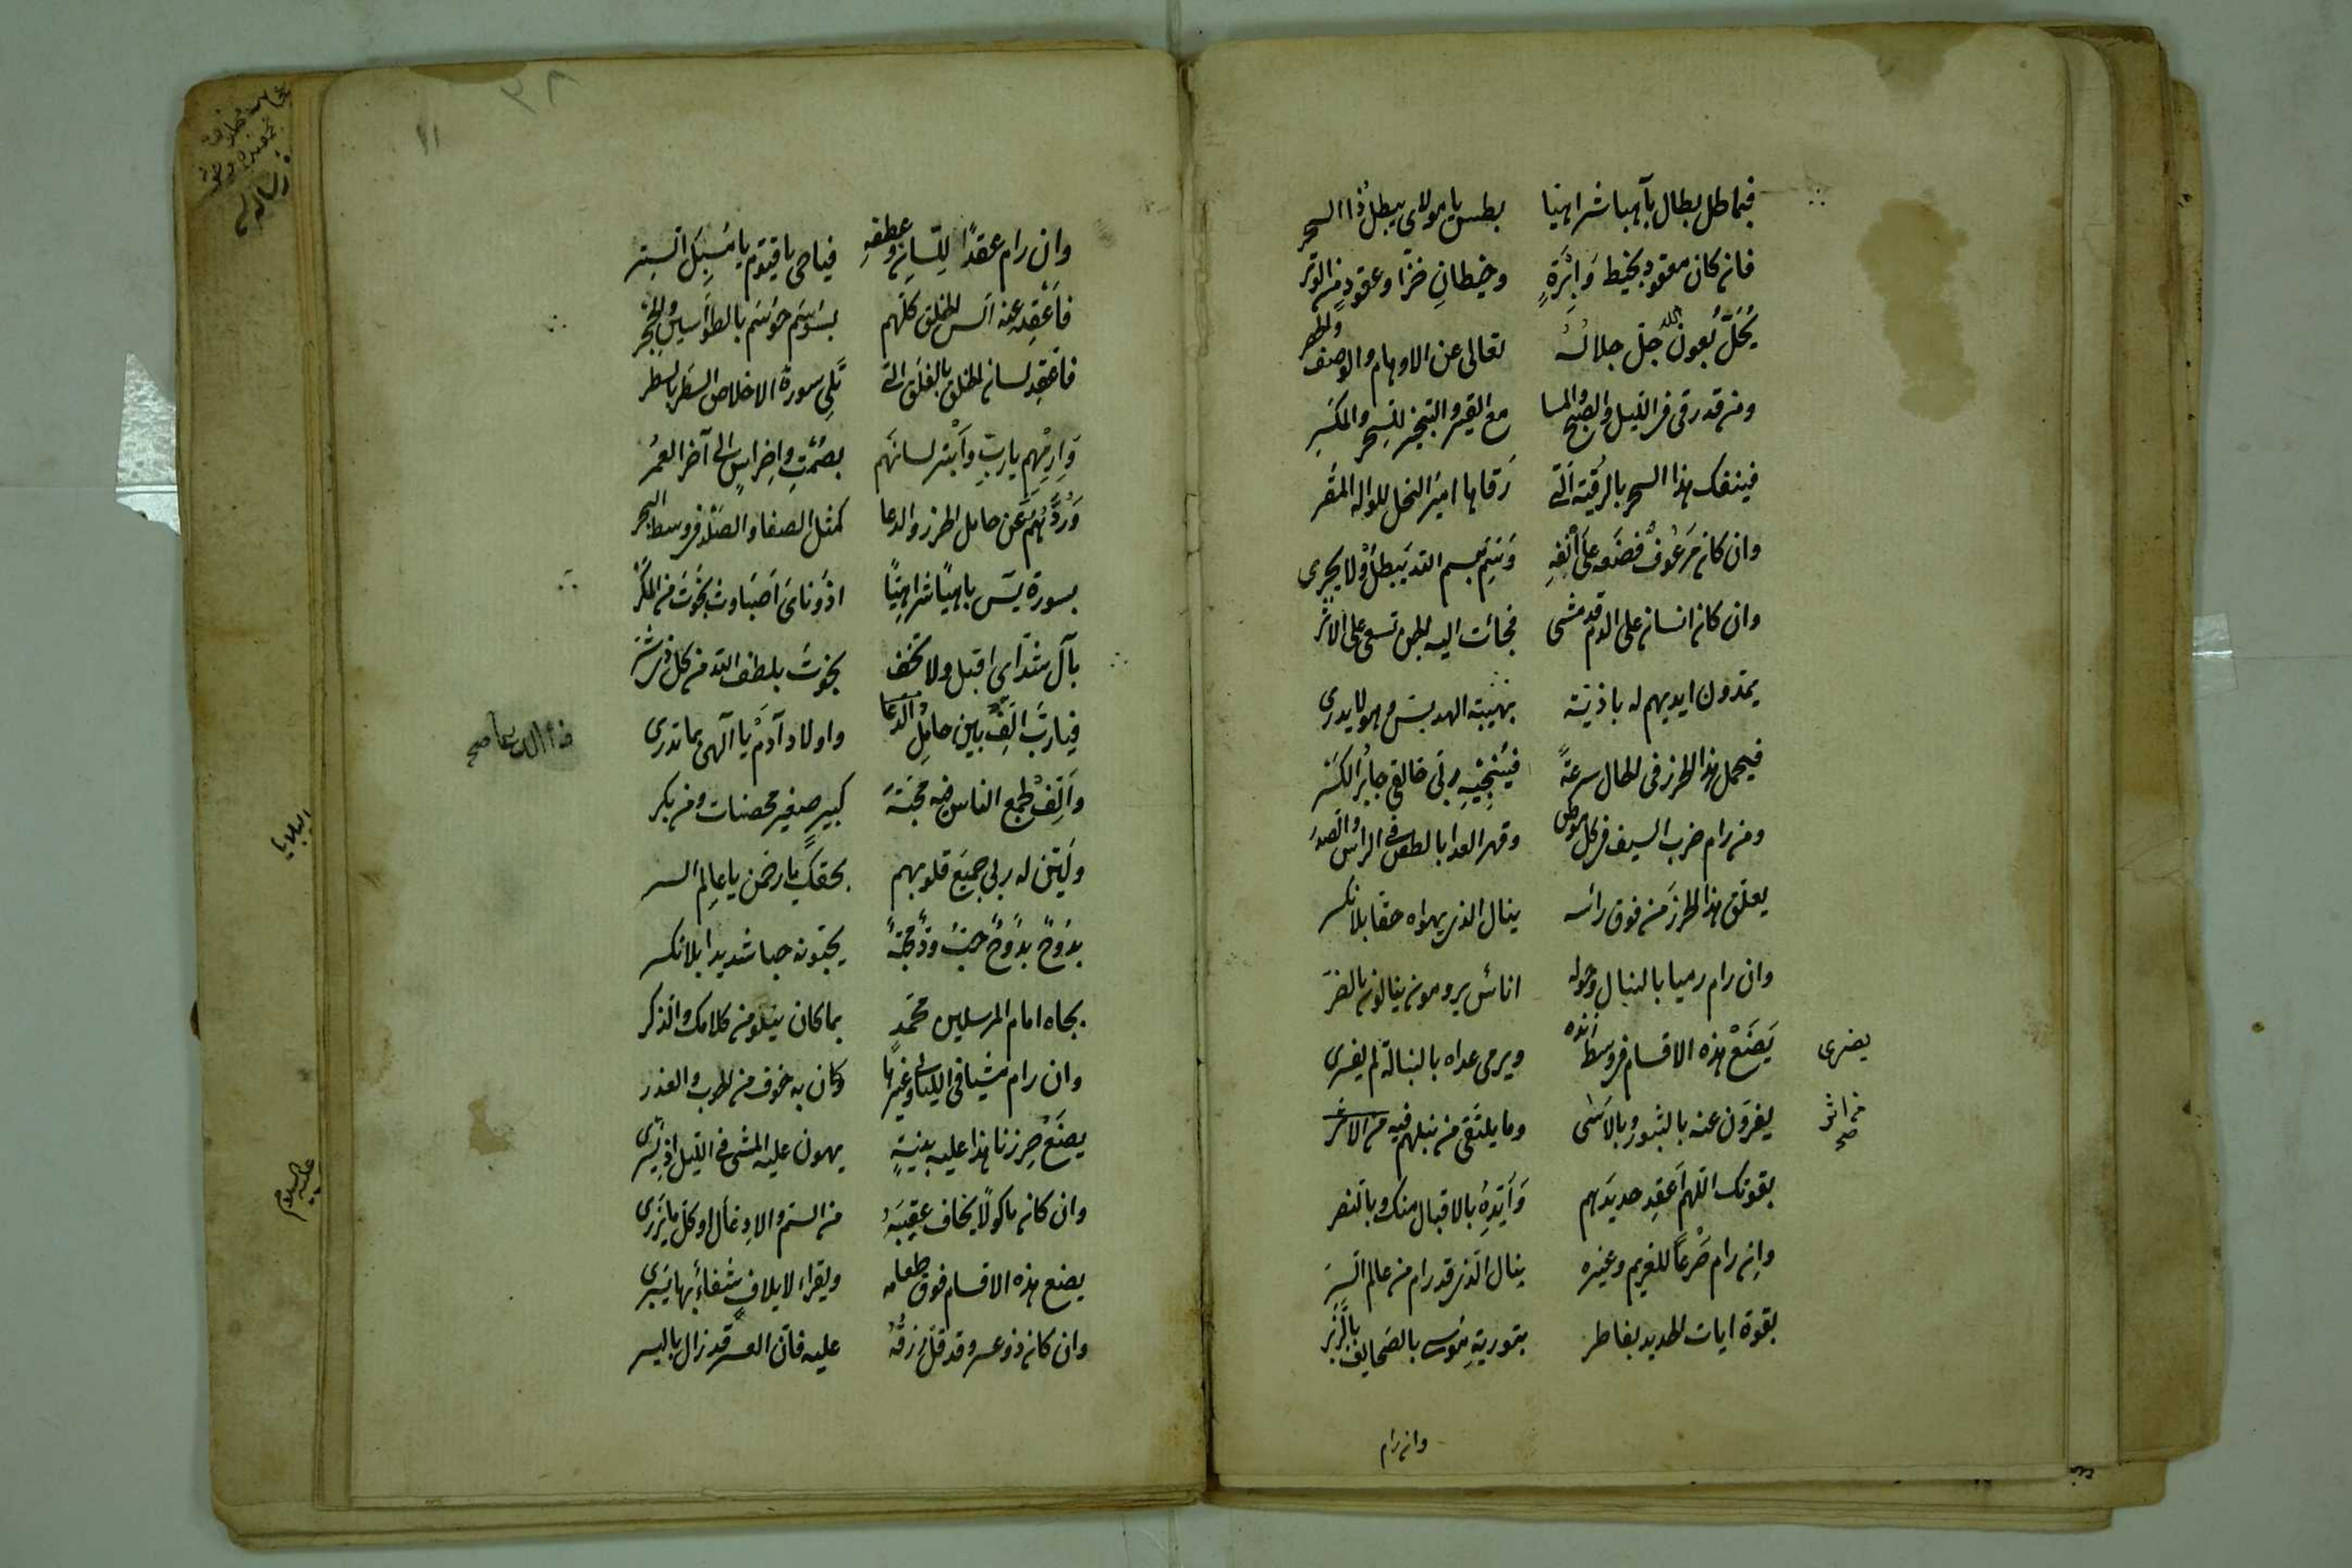 فيا طل بطال بآهيا شراهيا بطس يا مولاي يبطل ذا السحر
فان كان معقود بخيط وابرة وخيطان خزا وعقود من الوتر
يحل بعون الله جل جلاله تعالى عن الاوهام والوصف
ومن قد رقى في الليل والصبح والمسا مع القبر والتبخير للسحر والمكر
فينفك هذا السحر بالرقية التي رقاها امير النحل للواله المقر
وان كان مرعوف فضعه على انفه وتيم بسم الله يبطل ولا يجرى
وان كان انسان على الدم قد مشى فجائت اليه الجن تسعى على الاثر
يمدون ايديهم له باذية بهيبة الهد بس وهو لا يدرى
فيحمل هذا الحرز في الحال سرعة فينجيه ربي خالقي جابر الكسر
ومن رام ضرب السيف في كل موطن وقهر العدا بالطعن في الراس والصدر
يعلق هذا الحرز من فوق راسه ينال الذي يهواه حقا بلا نكر
وان رام رميا بالنبال وحوله اناس يرومون ينالون بالضر
يضع هذه الاقسام في وسط ويرمى عداه بالنبالة لم يفرى
يضرى
يفرون عنه بالثبور وبالاسى وما يلتقى من نبلهم فيه من الاغر
من اثر صح
بقوتك اللهم اعقد حديدهم وايده بالاقبال منك وبالنصر
وان رام ضرعا للغريم وغيره ينال الذي قد رام من عالم السر
بقوة ايات الحديد بفاطر بتورية موسى بالصحايف بالزبر
وان رام
١١
وان رام عقدا للسان وعطفه فيا حي يا قيوم يا مسبل الستر
فاعقد عنه السن الخلق كلهم بسوسم حوسم بالطواسين والحجر
فاعقد لسان الخلق بالفلق التي تلى سورة الاخلاص السطر بالسطر
وارمهم يا رب وابتر لسانهم بصمت واخراس الى آخر العمر
وردهم عن حامل الحرز والدعا كمثل الصفا والصلد في وسط البحر
بسورة يس باهيا شراهيا اذوناى اصباوث نجوت من المكر
بآل شداى اقبل ولا تخف نجوت بلطف الله من كل ذى شر
فيا رب الف بين حامل الدعا واولاد آدم يا آلهي بما تدرى
والف جمع الناس محبة كبير صغير محصنات ومن بكر
ولين له ربي جميع قلوبهم بحقك يا رحمن يا عالم السر
بدوح بدوح حب ود محبة يحبونه حبا شديدا بلا نكر
بجاه امام المرسلين محمد بما كان يتلو من كلامك والذكر
وان رام مشيا في الليالي وغيرها وكان به خوف من الحرب والغدر
يضع حرزنا هذا عليه بنية يهون عليه المشى في الليل اذ يسرى
وان كان ماكولا يخاف عقيبه من السم والادغال او كل ما يزرى
يضع هذه الاقسام فوق طعامه ويقراء لايلاف شفاء بها يبرى
وان كان ذو عسر وقد قل رزقه عليه فان العسر قد زال باليسر
البلايا
عليه السلام